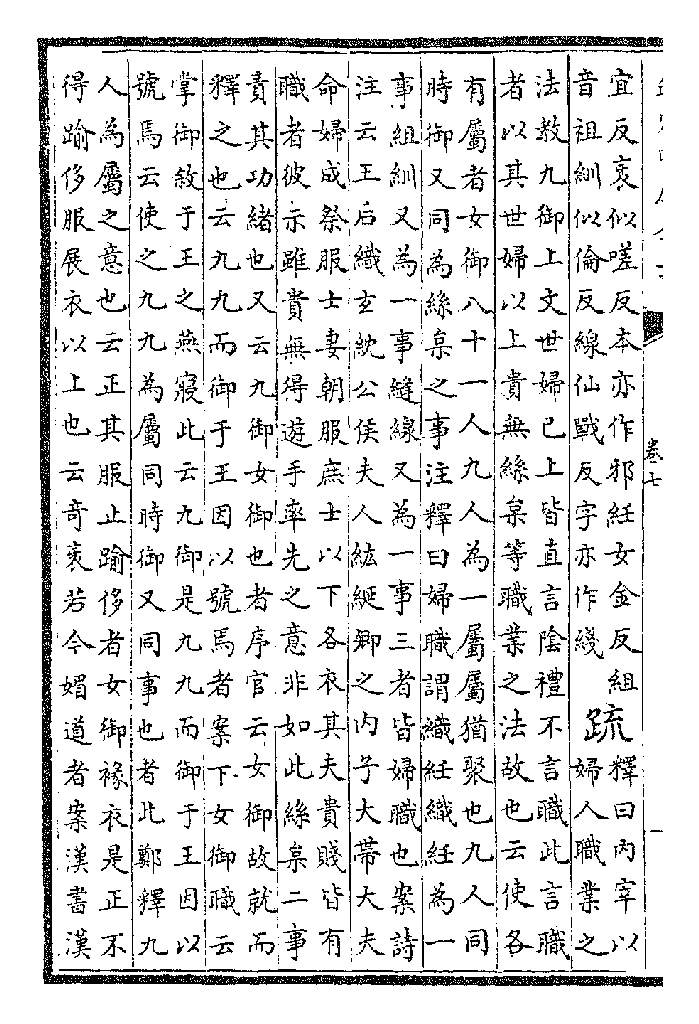 卷七
一
宜反衺似嗟反本亦作邪絍女金反組
音祖紃似倫反線仙戰反字亦作綫
疏
釋曰內宰以
婦人職業之
法教九御上文世婦已上皆直言陰禮不言職此言職
者以其世婦以上貴無絲枲等職業之法故也云使各
有屬者女御八十一人九人為一屬屬猶聚也九人同
時御又同為絲枲之事注釋曰婦職謂織絍織絍為一
事組紃又為一事縫線又為一事三者皆婦職也案詩
注云王后織玄紞公侯夫人紘綖卿之內子大帶大夫
命婦成祭服士妻朝服庶士以下各衣其夫貴賤皆有
職者彼示雖貴無得遊手率先之意非如此絲枲二事
責其功緒也又云九御女御也者序官云女御故就而
釋之也云九九而御于王因以號焉者案下女御職云
掌御敘于王之燕寢此云九御是九九而御于王因以
號焉云使之九九為屬同時御又同事也者此鄭釋九
人為屬之意也云正其服止踰侈者女御褖衣是正不
得踰侈服展衣以上也云奇衺若今媚道者案漢書漢